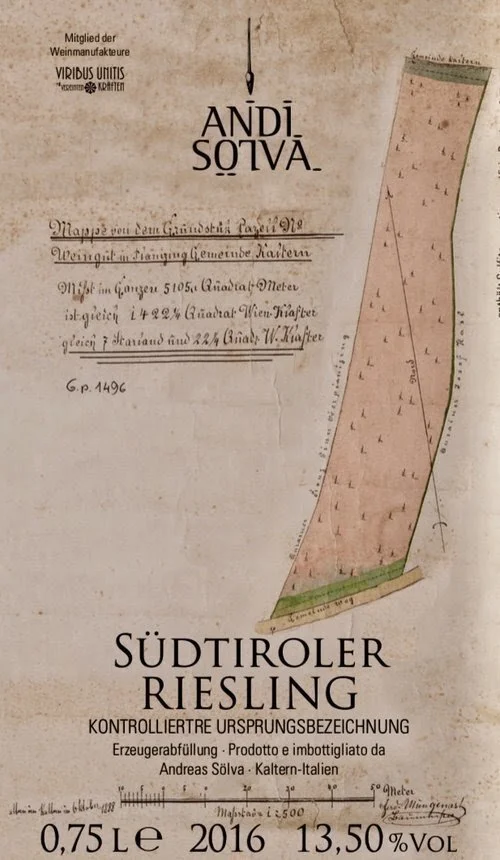 Mitglied der
Weinmanufakteure
VIRIBUS UNITIS
VEREINTEN KRÄFTEN
ANDI
SÖLVA
Gemeinde Kaltern
Mappe von dem Grundstük Parzell No
Weingut in Gemeinde Kaltern
Mißt im Ganzen 5105 Quadrat Meter
ist gleich 1422/4 Quadrat Wien Klafter
gleich 7 Stariand und 22/4 Quadr W. Klafter
G.p. 1496
Nord
Anrainer
Anrainer Josef
Gemeinde Weg
SÜDTIROLER
RIESLING
KONTROLLIERTRE URSPRUNGSBEZEICHNUNG
Erzeugerabfüllung · Prodotto e imbottigliato da
Andreas Sölva · Kaltern-Italien
10 5 0 10 20 30 40 50 Meter
Maßstab 1:500
0,75 L e 2016 13,50 %VOL